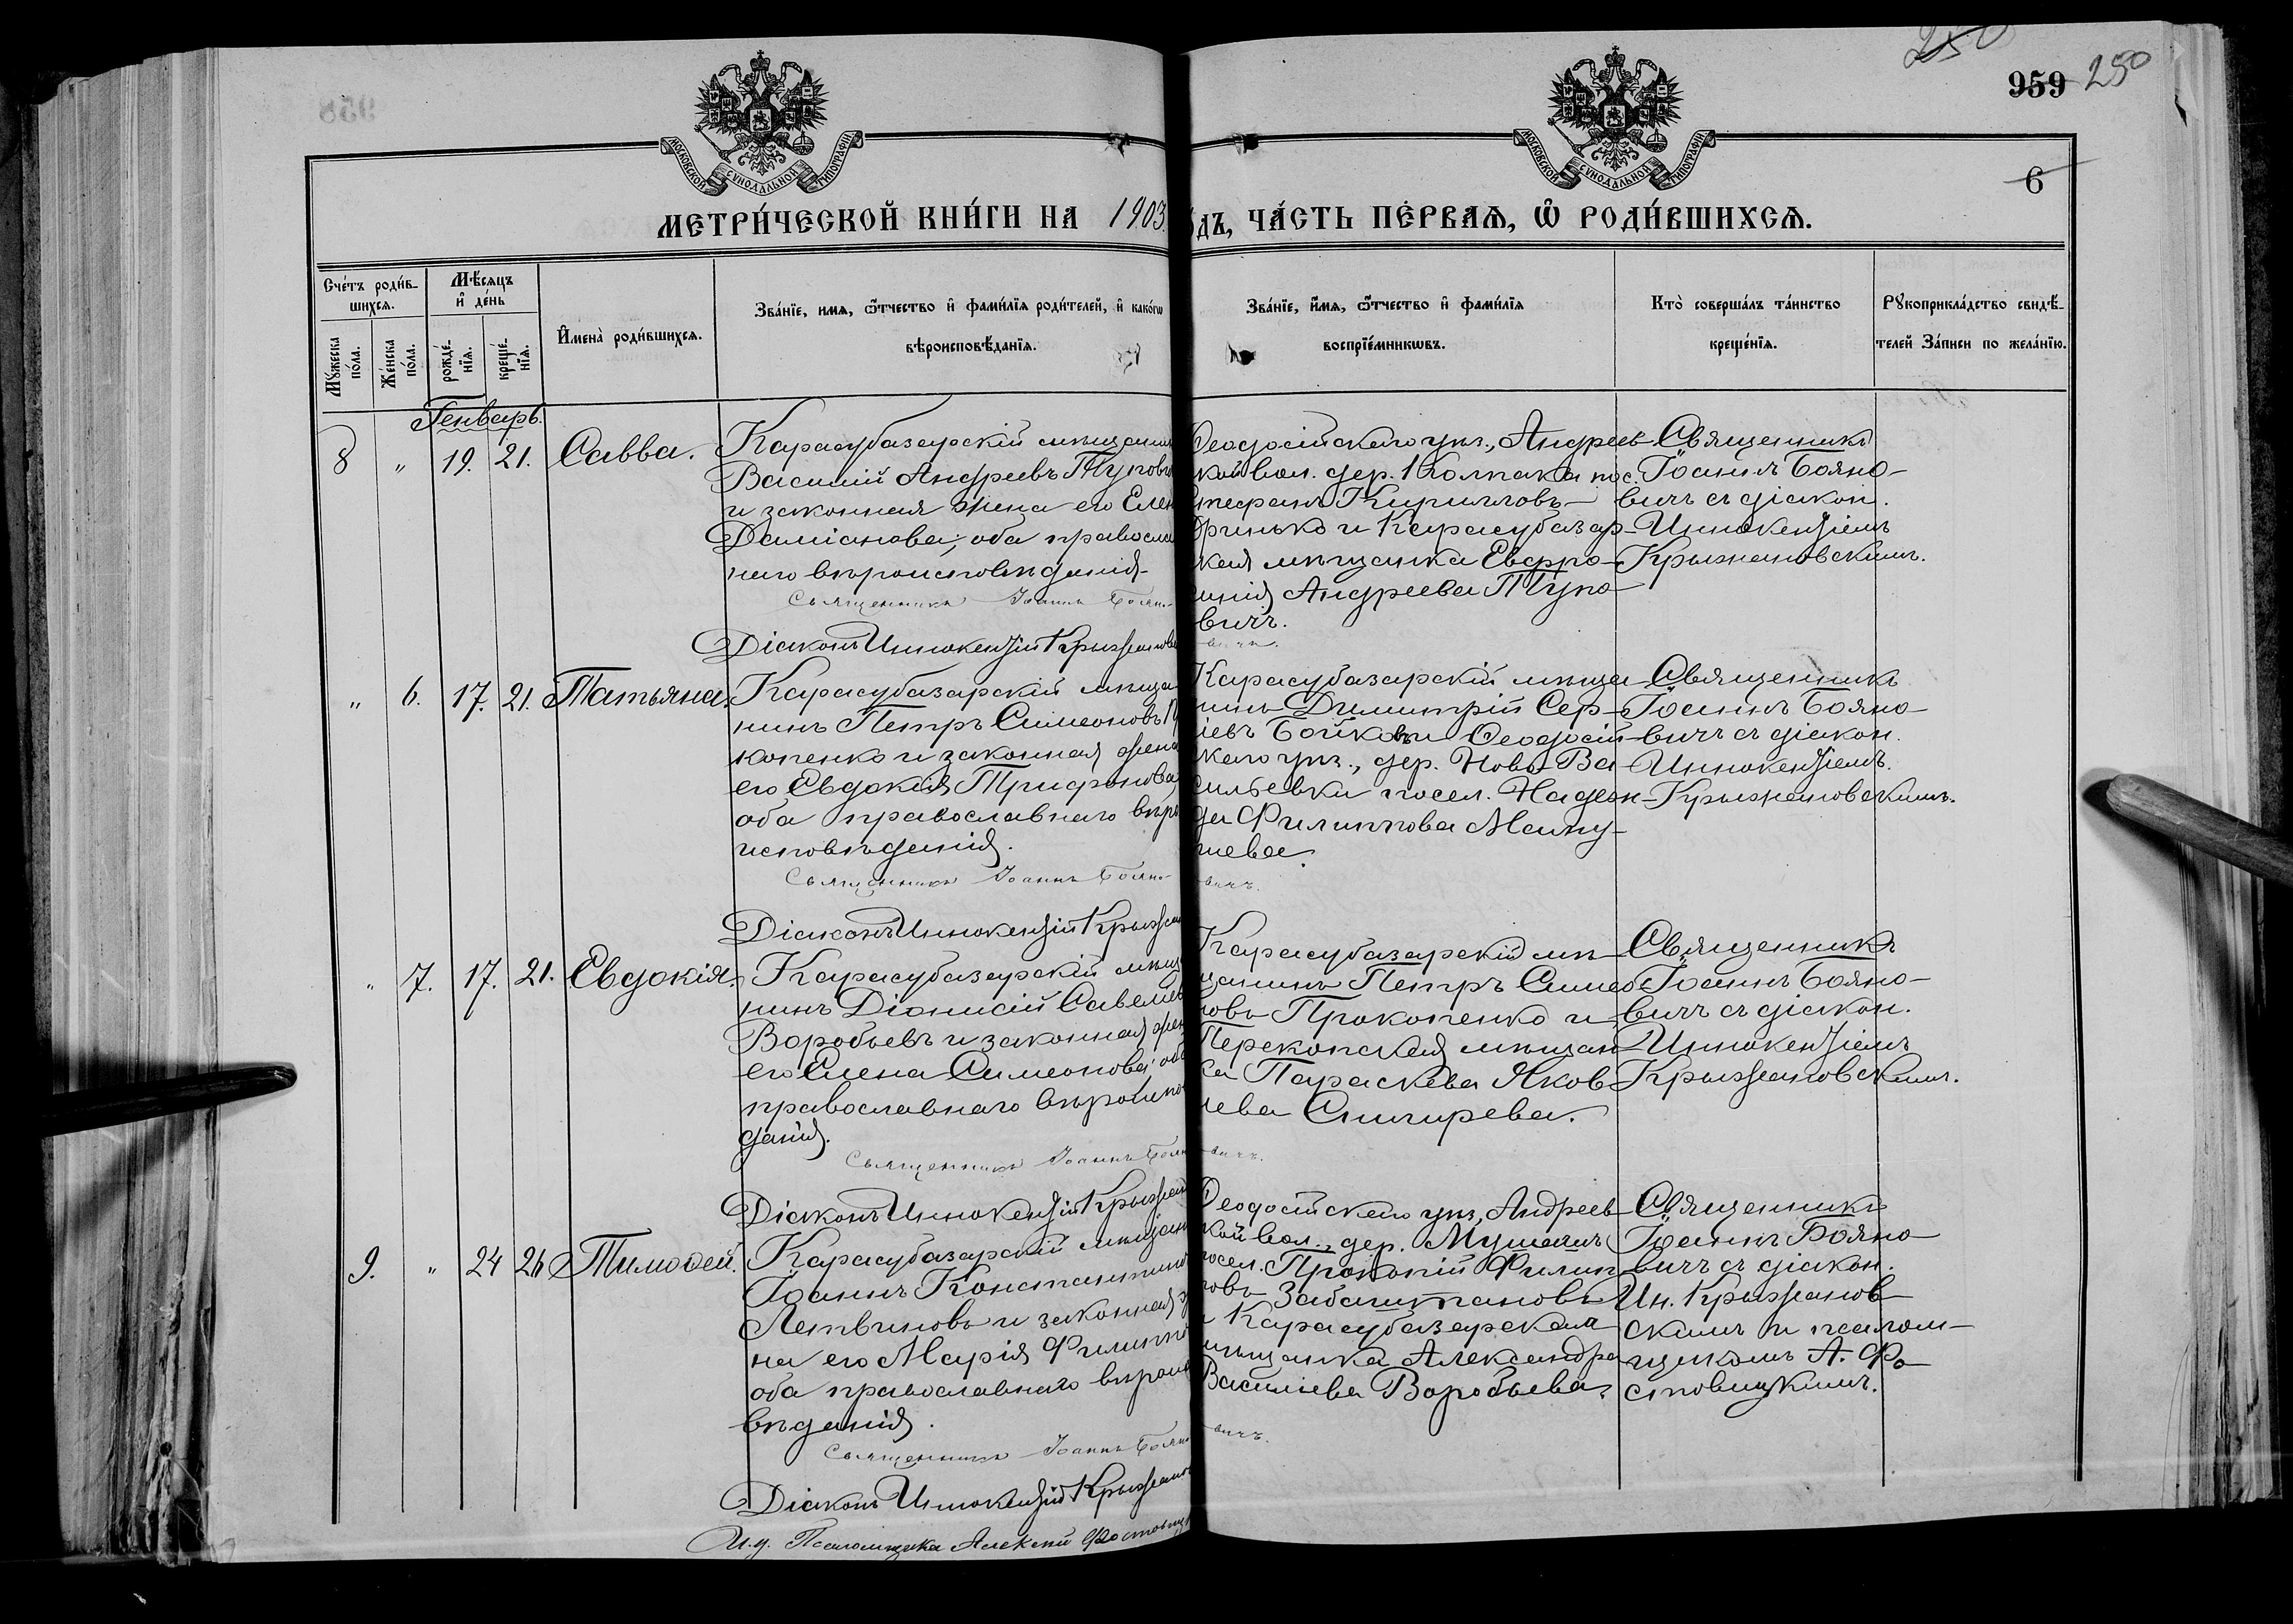 250
959 250
6
МОСКОВСКОЙ СѴНОДАЛЬНОЙ ТИПОГРАФІИ
МОСКОВСКОЙ СѴНОДАЛЬНОЙ ТИПОГРАФІИ
МЕТРИ́ЧЕСКОЙ КНИ́ГИ НА 1903 ДЪ, ЧА́СТЬ ПЕ́РВАѦ, Ѡ РОДИ́ВШИХСѦ.
Счéтъ роди́в-
шихсѧ.
Мꙋ́жеска
по́ла.
Же́нска
по́ла.
Мѣ́сѧцъ
и҆ де́нь
рожде́-
нїѧ.
креще́-
нїѧ.
И҆мена̀ роди́вшихсѧ.
Зва́нїе, имѧ, ѻ҆́тчество и҆ фами́лїѧ роди́телей, и҆ како́гѡ
вѣроисповѣ́данїѧ.
Зва́нїе, и҆́мѧ, ѻ҆́тчество и҆ фами́лїѧ
воспрїе́мникѡвъ.
Кто̀ соверша́лъ та́инство
креще́нїѧ.
Рꙋкоприкла́дство свидѣ́-
телей За́писи по жела́нїю.
Генварь.
8 " 19. 21. Савва.
Карасубазарскій мѣщанин
Василій Андреевъ Тупови
и законная жена его Елен
Даміанова, оба правосла
наго вѣроисповѣданія
Священникъ Іоаннъ Бояно-
вичъ.
Діаконъ Иннокентій Крыжановс
Ѳеодосійскаго уѣз., Андреев-
кой вол. дер. Колпака пос.
Стефанъ Кирилловъ
и Карасубазар-
кая мѣщанка Евфро-
синія Андреева Тупо-
вичъ.
Священникъ
Іоаннъ Бояно-
вичъ съ діакон.
Иннокентіемъ
Крыжановскимъ.
" 6. 17. 21. Татьяна.
Карасубазарскій мѣща-
нинъ Петръ Симеоновъ П
копенко и законная жена
его Евдокія Трифонова,
оба православнаго вѣро
исповѣданія.
Священникъ Іоаннъ Бояно-
вичъ.
Діаконъ Иннокентій Крыжан
Карасубазарскій мѣща-
нинъ Димитрій Сер-
іевъ Бойковъ и Ѳеодосій-
скаго уѣз., дер. Ново-Ва-
сильевки посел. Надеж-
да Филиппова Мату-
шева.
Священникъ
Іоаннъ Бояно-
вичъ съ діакон.
Иннокентіемъ.
Крыжановскимъ.
" 7. 17. 21. Евдокія.
Карасубазарскій мѣща
нинъ Діонисій Савеліев
Воробьевъ и законная жен
его Елена Симеонова, оба
православнаго вѣроиспо
данія.
Священникъ Іоаннъ Бояно
вичъ.
Діаконъ Иннокентій Крыжан
Карасубазарскій мѣ-
щанинъ Петръ Симео-
новъ Прокопенко и
Перекопская мѣщан-
ка Параскева Яков-
лева Снигирева.
Священникъ
Іоаннъ Бояно-
вичъ съ діакон.
Иннокентіемъ
Крыжановскимъ.
9. " 24 26 Тимоѳей.
Карасубазарскій мѣщан
Іоаннъ Константино
Летвиновъ и законная ж
на его Марія Филиппо
оба православнаго вѣроис
вѣданія.
Священникъ Іоаннъ Бояно
вичъ.
Діаконъ Иннокентій Крыжанов
И.д. Псаломщика Алексій Фостовиц
Ѳеодосійскаго уѣз, Андреев-
кой вол., дер.
посел. Прокопій Филип-
повъ Забаштановъ
и Карасубазарская
мѣщанка Александра
Василіева Воробьева.
Священникъ
Іоаннъ Бояно-
вичъ съ діакон.
Ин. Крыжанов-
скимъ и псалом-
щикомъ А. Фо-
стовицкимъ.